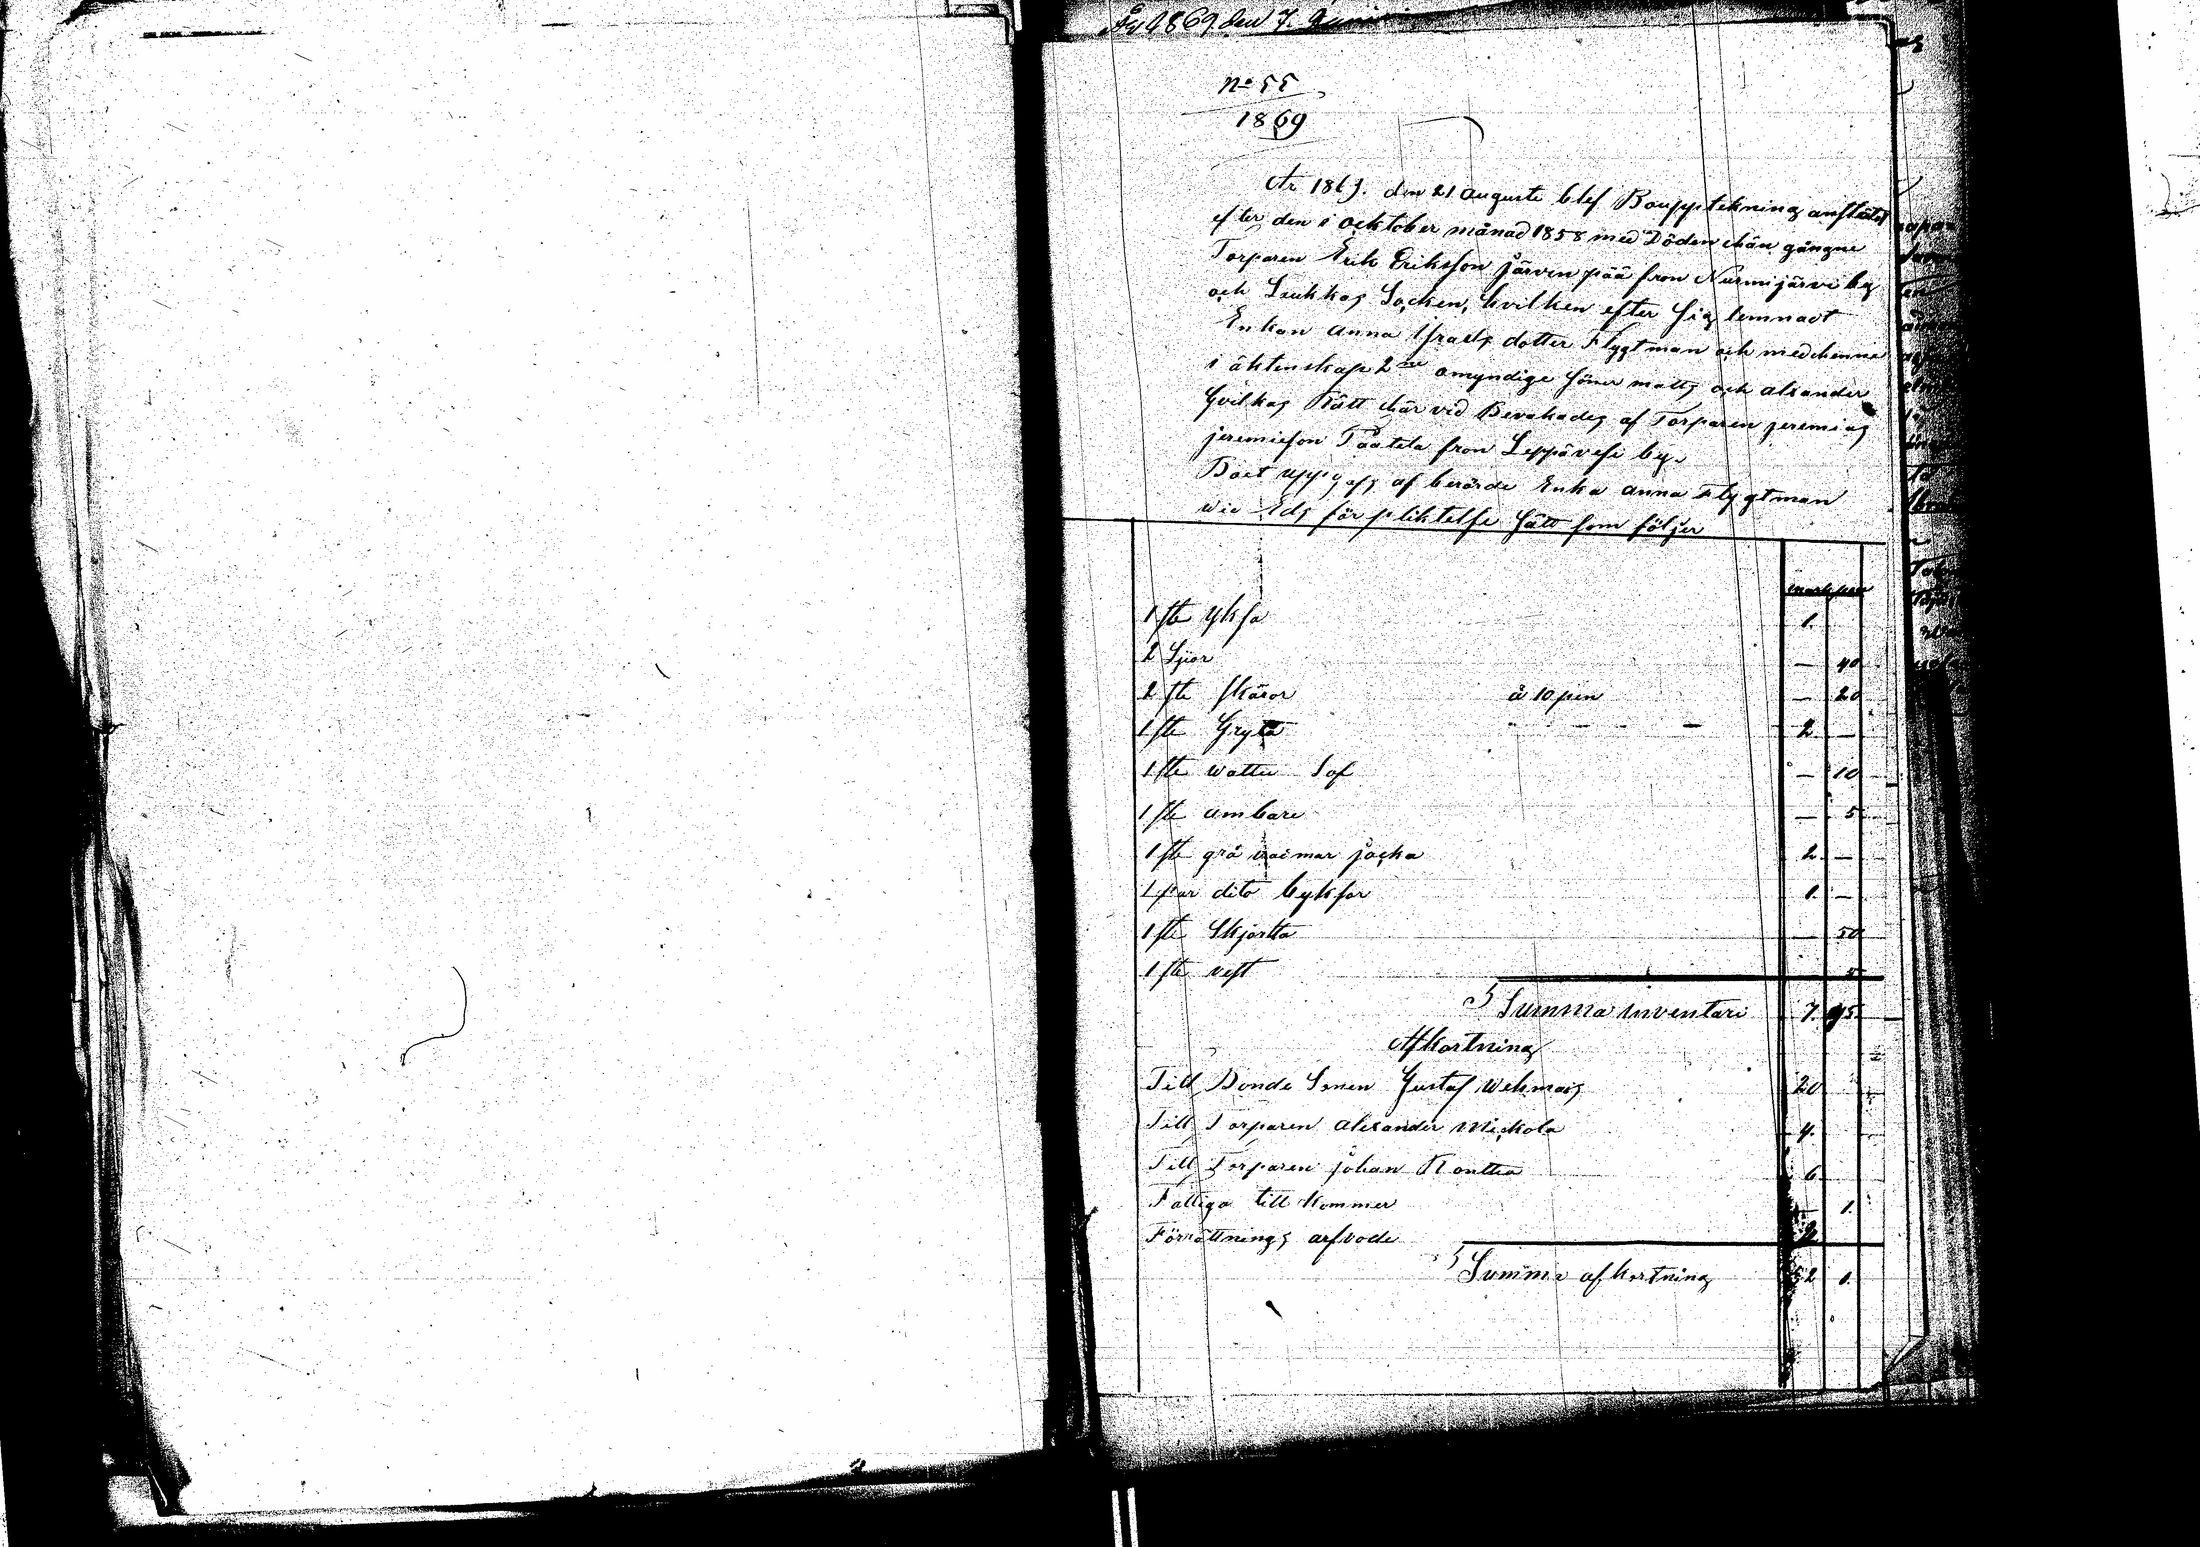 År 1869 den 7. Juni
No 55
1869
År 1869. den 21 Auguste blef Boupptekning anstäld
efter den i ocktober månad 1858 med Döden hän gångne
Torparen Erik Eriksson Järvenpää fron Nurmijärvi by
och Laukkas Socken, hvilken efter sig lemnadt
Enkan Anna Israels dotter Flygtman och med henne
i äktenskap 2ne omyndige söner matts och alxander
hvilkas Rätt här vid Bevakades af Torparen jeremias
jeremieson Taatila fron Leppävesi by.
Boet uppgafs af berörde Enka Anna Flygtman
wid Eds för pliktelse Sått som följer
mark pen
1 ste yksa 1.
2 Ljor — 40
2 ste skäror à 10 pen — 20
1 ste Gryta 2 —
1 ste wattu Så — 10
1 ste ambare — 5
1 ste grå vaimar jacka 2 —
1 par dito byksor 1. —
1 ste Skjortta — 50
1 ste vest
Summa inventari 7. 45.
Afkortning
Till Bonde Sonen Gustaf Wehmais 20
Till Torparen Alexander Mickola 4.
Till Torparen Johan Rontta 6
Fattiga till kommer — 1.
Förrättnings arfvode 2
Summa afkortning 52 1.